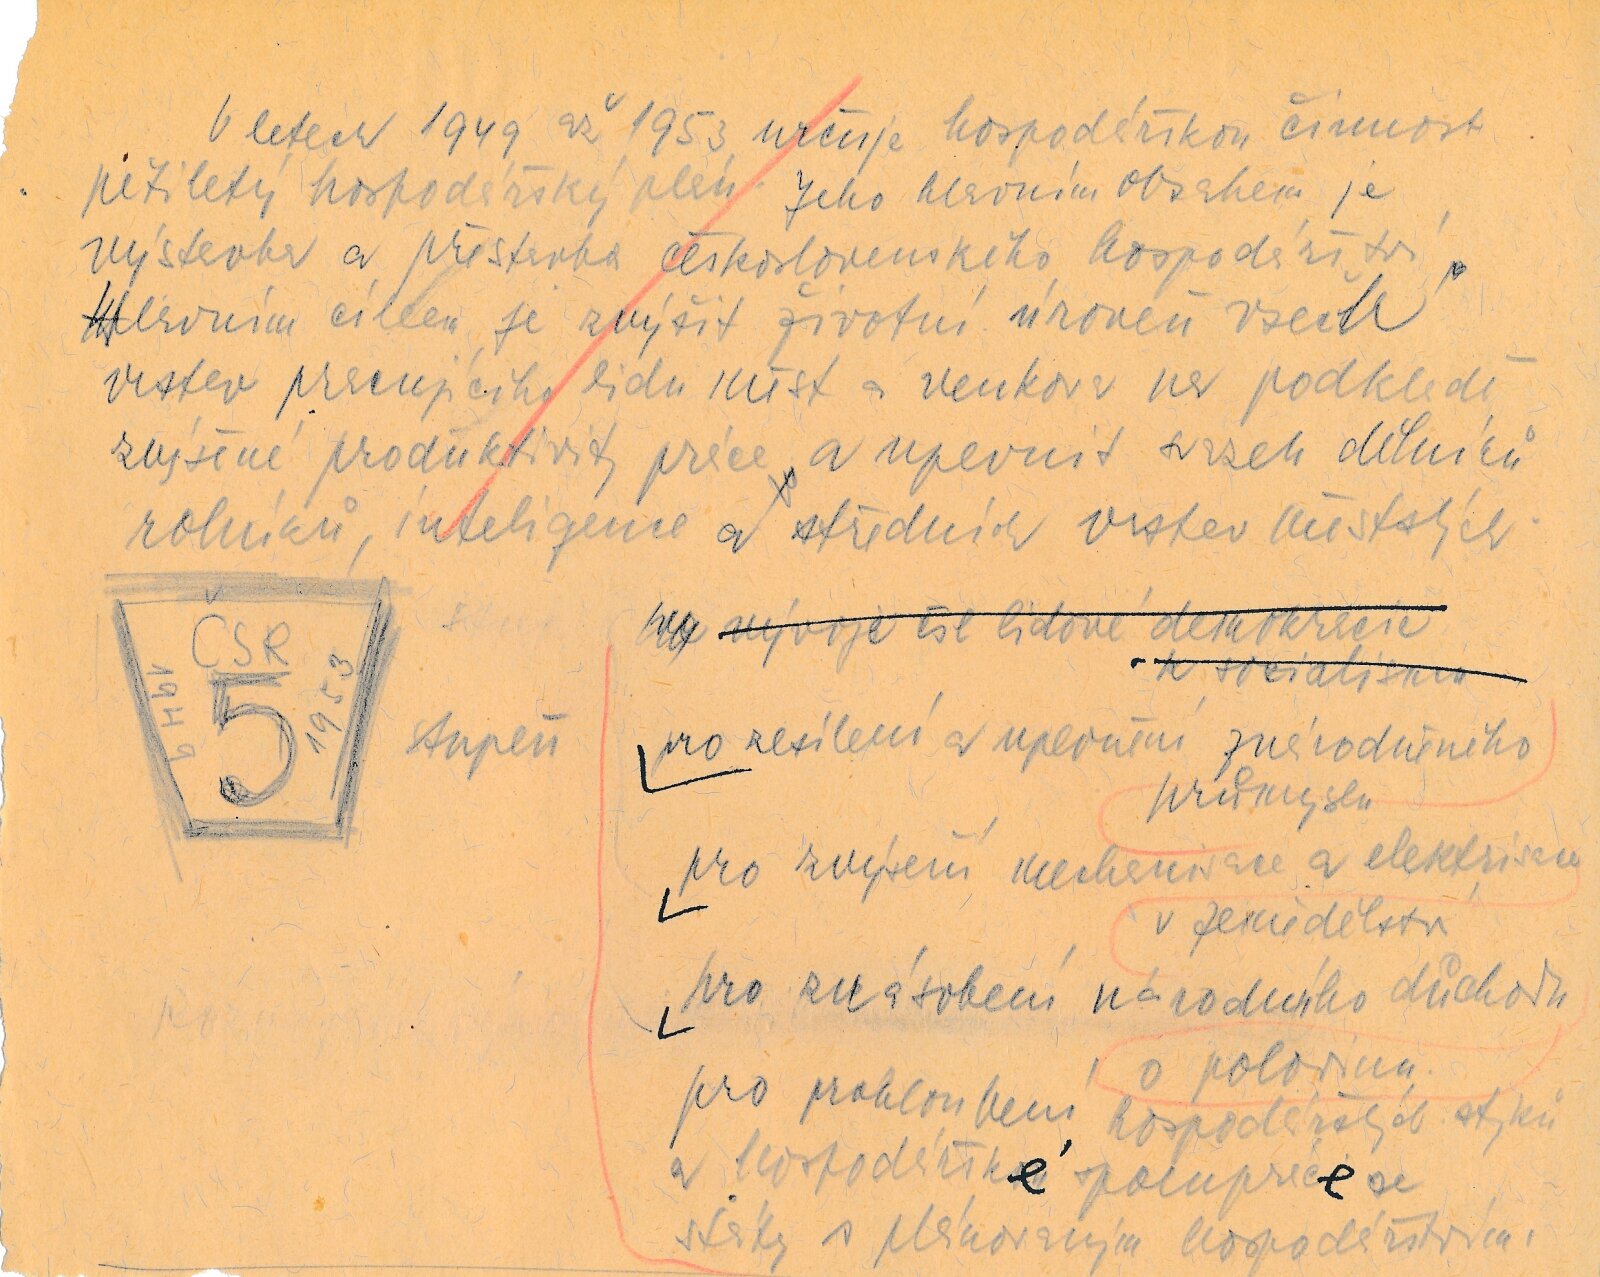 V letech 1949 až 1953 určuje hospodářskou činnost
pětiletý hospodářský plán. Jeho hlavním obsahem je
výstavba a přestavba československého hospodářství,
Hlavním cílem je zvýšit životní úroveň všech
vrstev pracujícího lidu měst a venkova na podkladě
zvýšené produktivity práce a upevnit svazek dělníků
rolníků, inteligence a středních vrstev městských.
vývoje čsl lidové demokracie
k socialismu
ČSR
5
1949
1953
stupeň
pro zesílení a upevnění znárodněného
průmyslu
pro zvýšení mechanisace a elektrisace
v zemědělství
pro znásobení národního důchodu
o polovinu.
pro prohloubení hospodářských styků
a hospodářské spolupráce se
státy s plánovaným hospodářstvím.